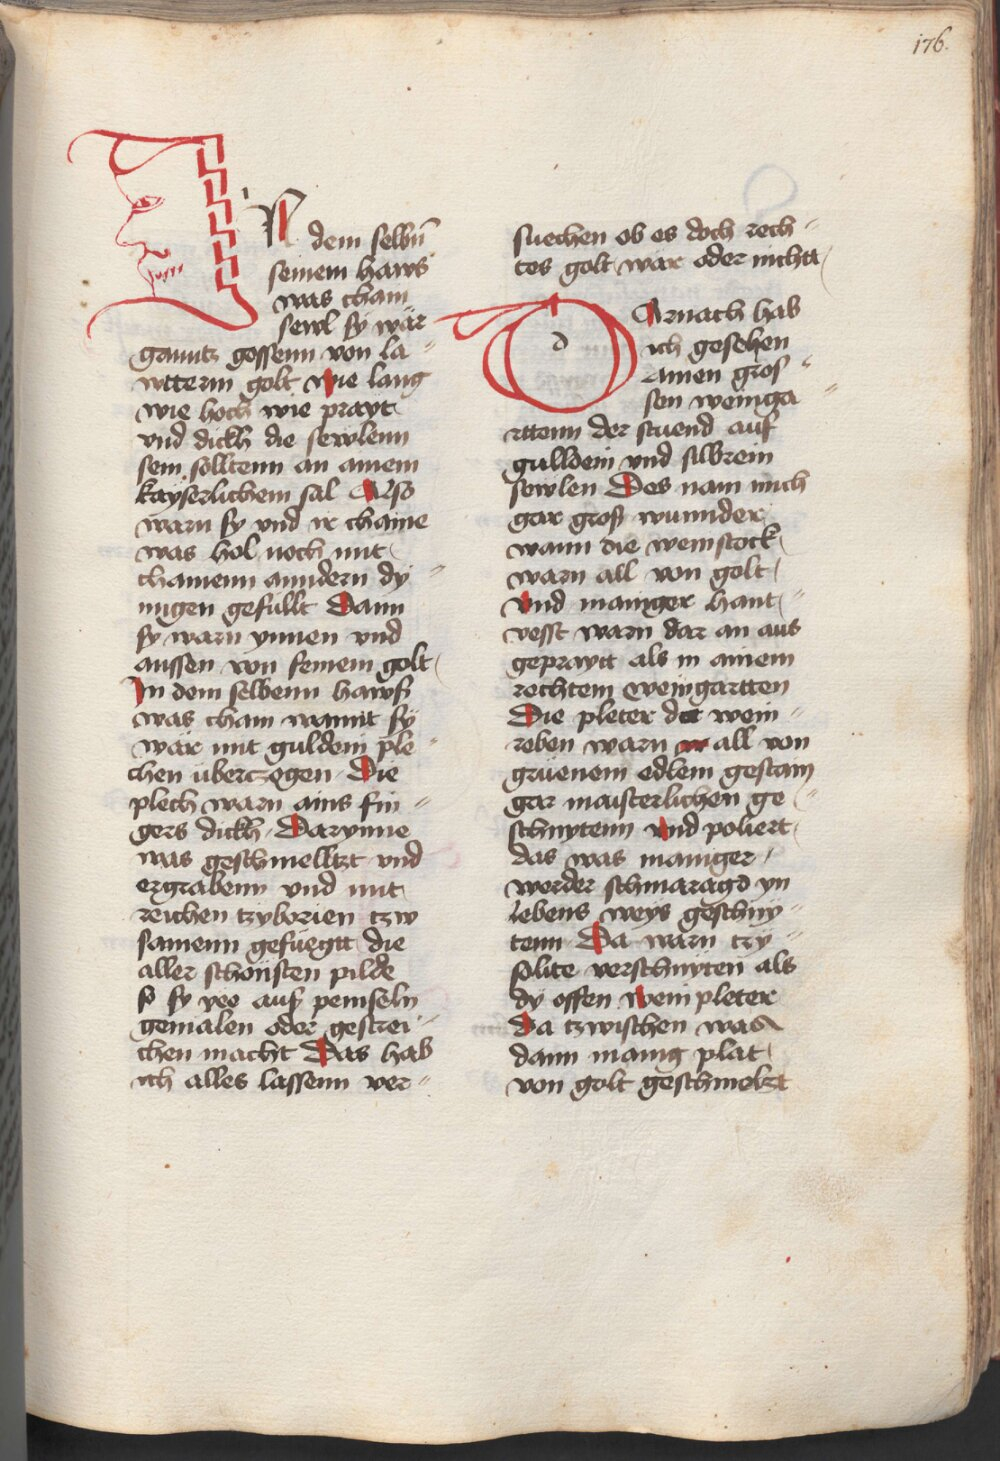 176.
IN
dem selbñ
seinem haws
was cham
sewl sy wär
ganntz gossenn von la⸗
wtterm golt wie lang
wie hoch wie prayt
vnd dickh die sewlenn
sein solltenn an ainem
kayserlichem sal Also
warn sy vnd ir chaine
was hol noch mit
chainenn anndern dy⸗
nngen gefullt Dann
sy warn ynnen vnd
aussen von feinem golt
In dem selbenn hawß
was cham wannt sy
wär mit guldein ple⸗
chen uberczegen Die
plech warn ains fin⸗
gers dickh Darynne
was geschmelltzt vnd
ergrabenn vnd mit
reichen tzyborien tzw
samenn gefüegtt die
aller schonsten pilde
so sy yee auß pennseln
gemalen oder gestrei⸗
chen macht Das hab
ich alles lassenn ver⸗
suechen ob es doch rech⸗
tes golt wär oder nicht
d Arnach hab
ich gesehen
ainen gros⸗
sen weinga⸗
rttenn der stuend auf
gulldein vnd silbrein
sewlen Des nam mich
gar groß wunnder
wann die weinstock
warn all von golt
Vnd maniger hant⸗
vesst warn dar an aus
gepraytt als in ainem
rechtem weingartten
Die pleter der wein⸗
reben warn all von
grüenem edlem gestain
gar maisterlichen ge⸗
schnytenn vnd poliert
das was maniger
werder schmaragd yn
lebens weys geschny⸗
tenn Da warn tzy⸗
solite verschnyten als
dy offen wein pleter
Da tzwischen was
dann manig plat
von golt geschmelzt